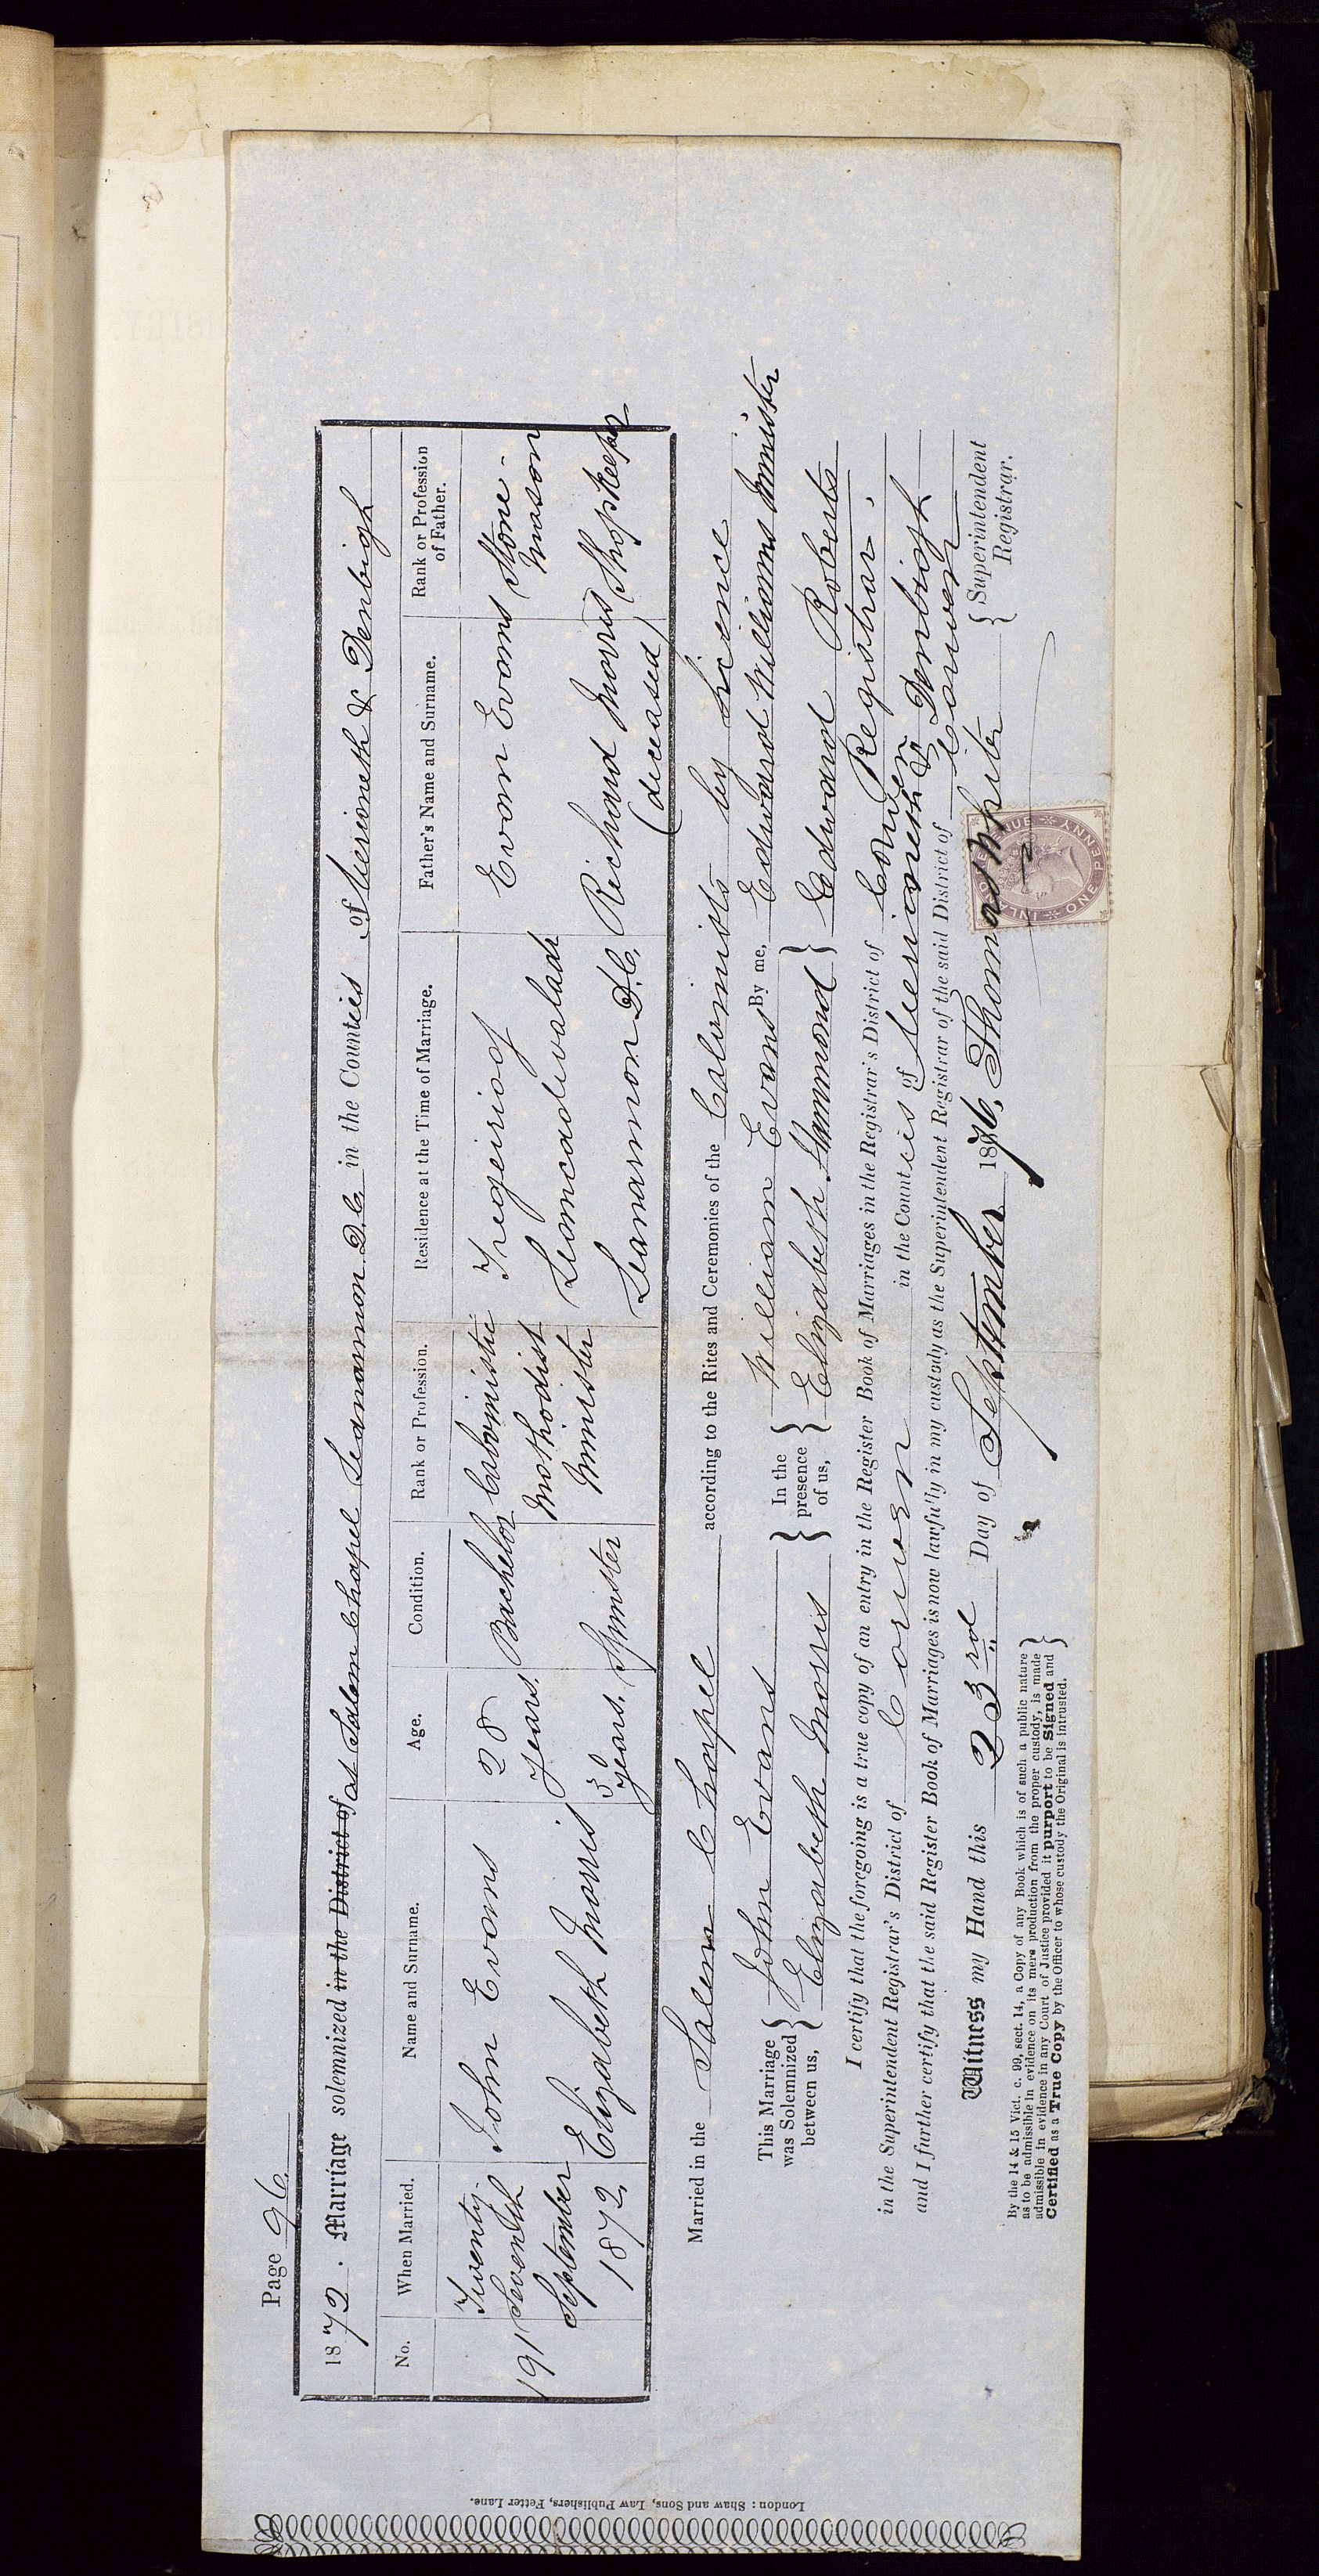 Page 96.
1872. Marriage solemnized in the District of at Salem Chapel Llanarmon D.C. in the Counties of Merioneth & Denbigh
No. When Married. Name and Surname. Age. Condition. Rank or Profession. Residence at the Time of Marriage. Father's Name and Surname. Rank or Profession of Father.
191 Twenty Seventh September 1872
John Evans 28 years. Bachelor Calvinistic Methodist Minister Tregeiriog Evan Evans Stone-mason
Elizabeth Morris 3 years. Spinster Llanarmon D.C. Richard Morris (deceased) Shopkeeper
Married in the Salem Chapel according to the Rites and Ceremonies of the Calvinists by licence
This Marriage was Solemnized between us, { John Evans } In the presence of us, { William Evans By me, Edward Williams Minister
{ Elizabeth Morris } { Elizabeth Hammond } Edward Roberts
Registrar.
I certify that the foregoing is a true copy of an entry in the Register Book of Marriages in the Registrar's District of Corwen
in the Superintendent Registrar's District of Corwen in the Counties of Merioneth & Denbigh
and I further certify that the said Register Book of Marriages is now lawfully in my custody as the Superintendent Registrar of the said District of Corwen
Witness my Hand this 23rd Day of September 1876, Thomas White { Superintendent Registrar.
By the 14 & 15 Vict. c. 99, sect. 14, a Copy of any Book which is of such a public nature
as to be admissible in evidence on its mere production from the proper custody, is made
admissible in evidence in any Court of Justice provided it purport to be Signed and
Certified as a True Copy by the Officer to whose custody the Original is intrusted.
INLAND REVENUE
ONE PENNY
London: Shaw and Sons, Law Publishers, Fetter Lane.